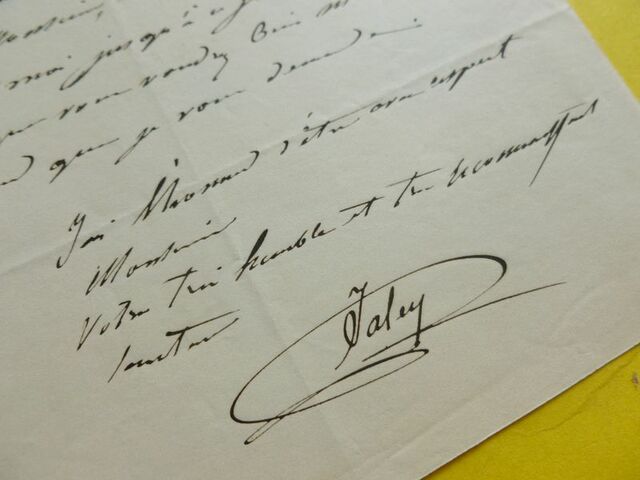 Monsieur,
moi jusqu'à ce
que vous voudrez bien m
que je vous demande
J'ai l'honneur d'être avec respect
Monsieur
Votre très humble et très reconnaissant
serviteur
Jaley